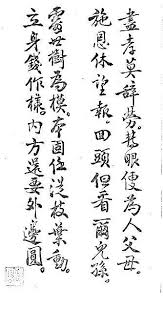 盡孝莫辭勞。轉眼便為人父母。
施恩休望報。回頭但看爾兒孫。
處世樹為模。本固任從枝葉動。
立身錢作樣。內方還要外邊圓。